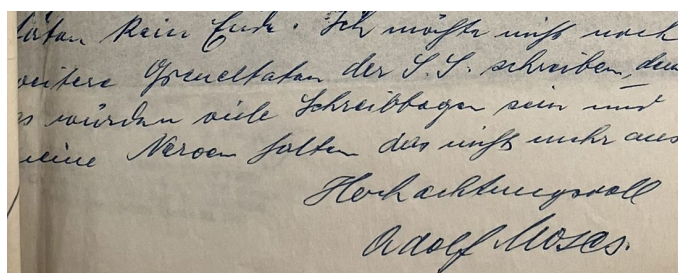 täten kein Ende. Ich möchte nicht noch
weitere Greueltaten der S.S. schreiben, denn
es würden viele Schreibbogen sein und
meine Nerven halten das nicht mehr aus
Hochachtungsvoll
Adolf Moses.